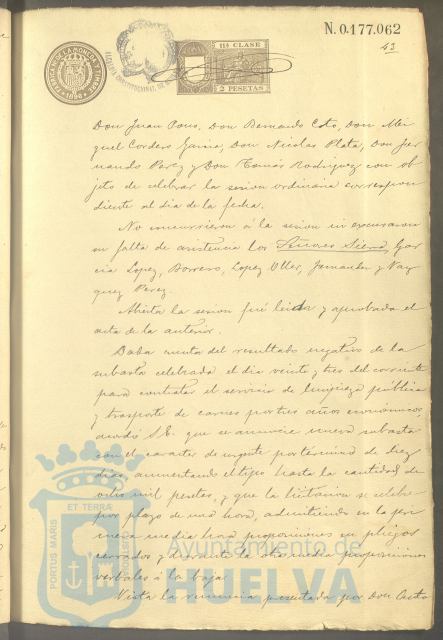 N. 0.177.062
43
11ª CLASE
2 PESETAS
1896
Don Juan Pons, Don Bernardo Coto, Don Mi
guel Cordero Garcia, Don Nicolas Plata, Don Fer
nando Perez y Don Tomás Rodriguez con ob
jeto de celebrar la sesion ordinaria correspon
diente al dia de la fecha.
No concurrieron á la sesion ni excusaron
su falta de asistencia los Señores Sierra, Gar
cia Lopez, Borrero, Lopez Fernandez y Vaz
quez Perez.
Abierta la sesion fué leida y aprobada el
acta de la anterior.
Dada cuenta del resultado negativo de la
subasta celebrada el dia veinte y tres del corriente
para contratar el servicio de limpieza pública
y trasporte de carnes por tres años económicos
acordó S.E. que se anuncie nueva subasta
con el caracter de urgente por término de diez
dias, aumentando el tipo hasta la cantidad de
ocho mil pesetas, y que la licitacion se celebre
por plazo de una hora, admitiendo en la pri
mera media hora proposiciones en pliegos
cerrados y durante la otra media proposiciones
verbales á la baja.
Vista la renuncia presentada por Don
PORTUS MARIS
ET TERRÆ
Ayuntamiento de
HUELVA